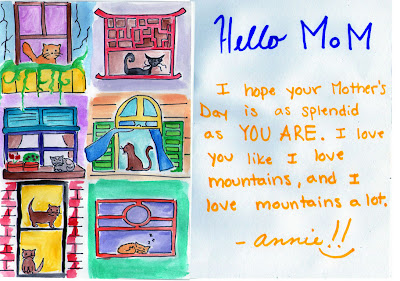 Hello MoM
I hope your Mother's
Day is as splendid
as YOU ARE. I love
you like I love
mountains, and I
love mountains a lot.
- annie!!